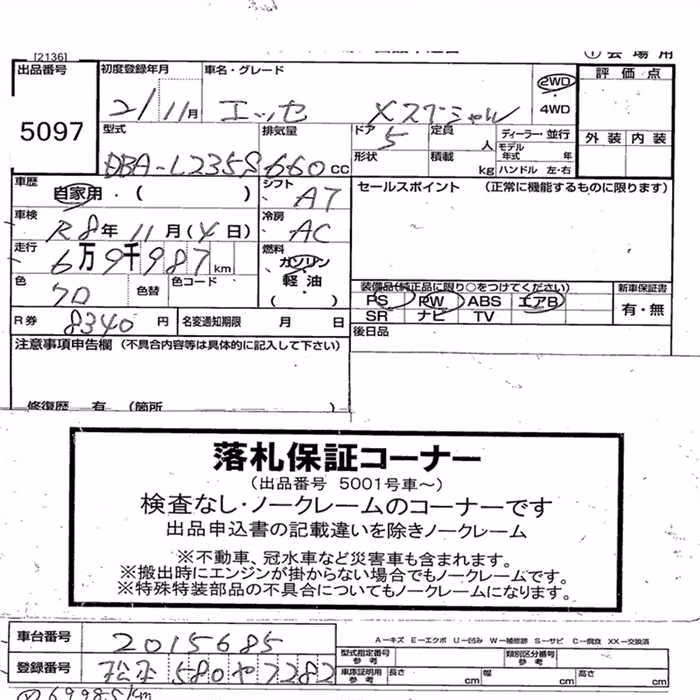 [2136]
① 会場用
出品番号 初度登録年月 車名・グレード 評価点
5097
21/11月 エッセ Xスペシャル 2WD 4WD
型式 排気量 ドア 定員 ディーラー・並行 外装 内装
DBA-L235S 660cc 5 人 モデル年式 年
形状 積載 kg ハンドル 左・右
車歴 自家用・( ) シフト AT セールスポイント (正常に機能するものに限ります)
車検 R8年11月(4日) 冷房 AC
走行 6万9千987km 燃料 ガソリン 軽油 ( )
色 クロ 色替 色コード
装備品(純正品に限り○をつけてください) 新車保証書
PS PW ABS エアB 有・無
SR ナビ TV
R券 8340円 名変通知期限 月 日 後日品
注意事項申告欄 (不具合内容等は具体的に記入して下さい)
修復歴 有 (箇所 )
落札保証コーナー
(出品番号 5001号車~)
検査なし・ノークレームのコーナーです
出品申込書の記載違いを除きノークレーム
※不動車、冠水車など災害車も含まれます。
※搬出時にエンジンが掛からない場合でもノークレームです。
※特殊特装部品の不具合についてもノークレームになります。
車台番号 2015685
A-キズ E-エクボ U-凹み W-補修跡 S-サビ C-腐食 XX-交換済
型式指定番号 参考 類別区分番号 参考
登録番号 松本 580 や 7282
車庫証明用 参考 長さ cm 幅 cm 高さ cm
69985km